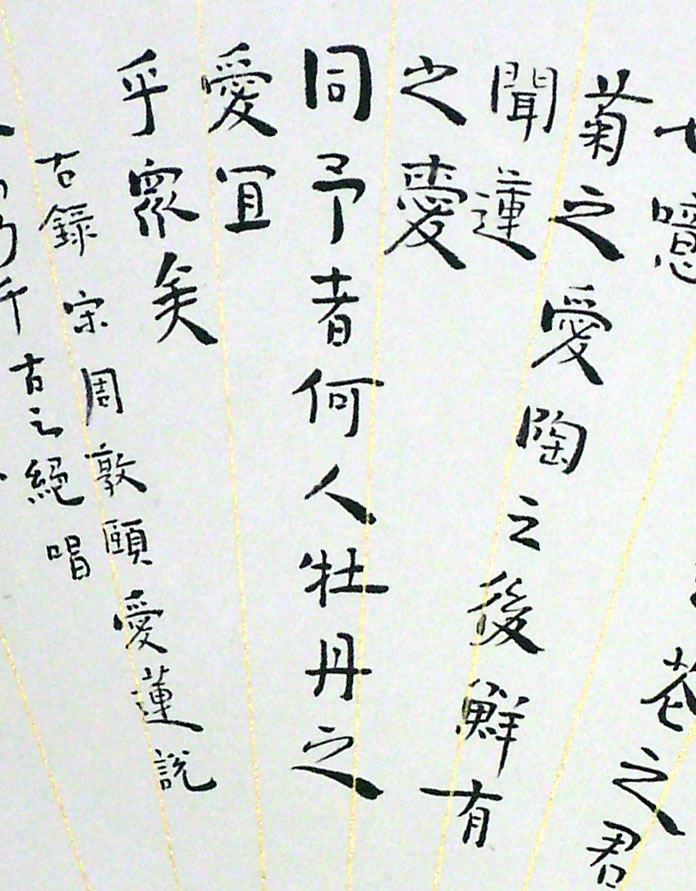 花之君
也噫
菊之愛陶之後鮮有
聞蓮
之愛
同予者何人牡丹之
愛宜
乎眾矣
右錄宋周敦頤愛蓮說
千古之絕唱